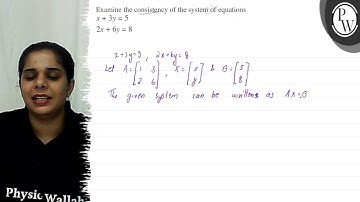 Examine the consistency of the system of equations
x + 3y = 5
2x + 6y = 8
x+3y=5 , 2x+6y=8
Let A = [1 3 2 6] , X = [x y] & B = [5 8]
The given system can be written as AX=B
Physic Wallah
PW